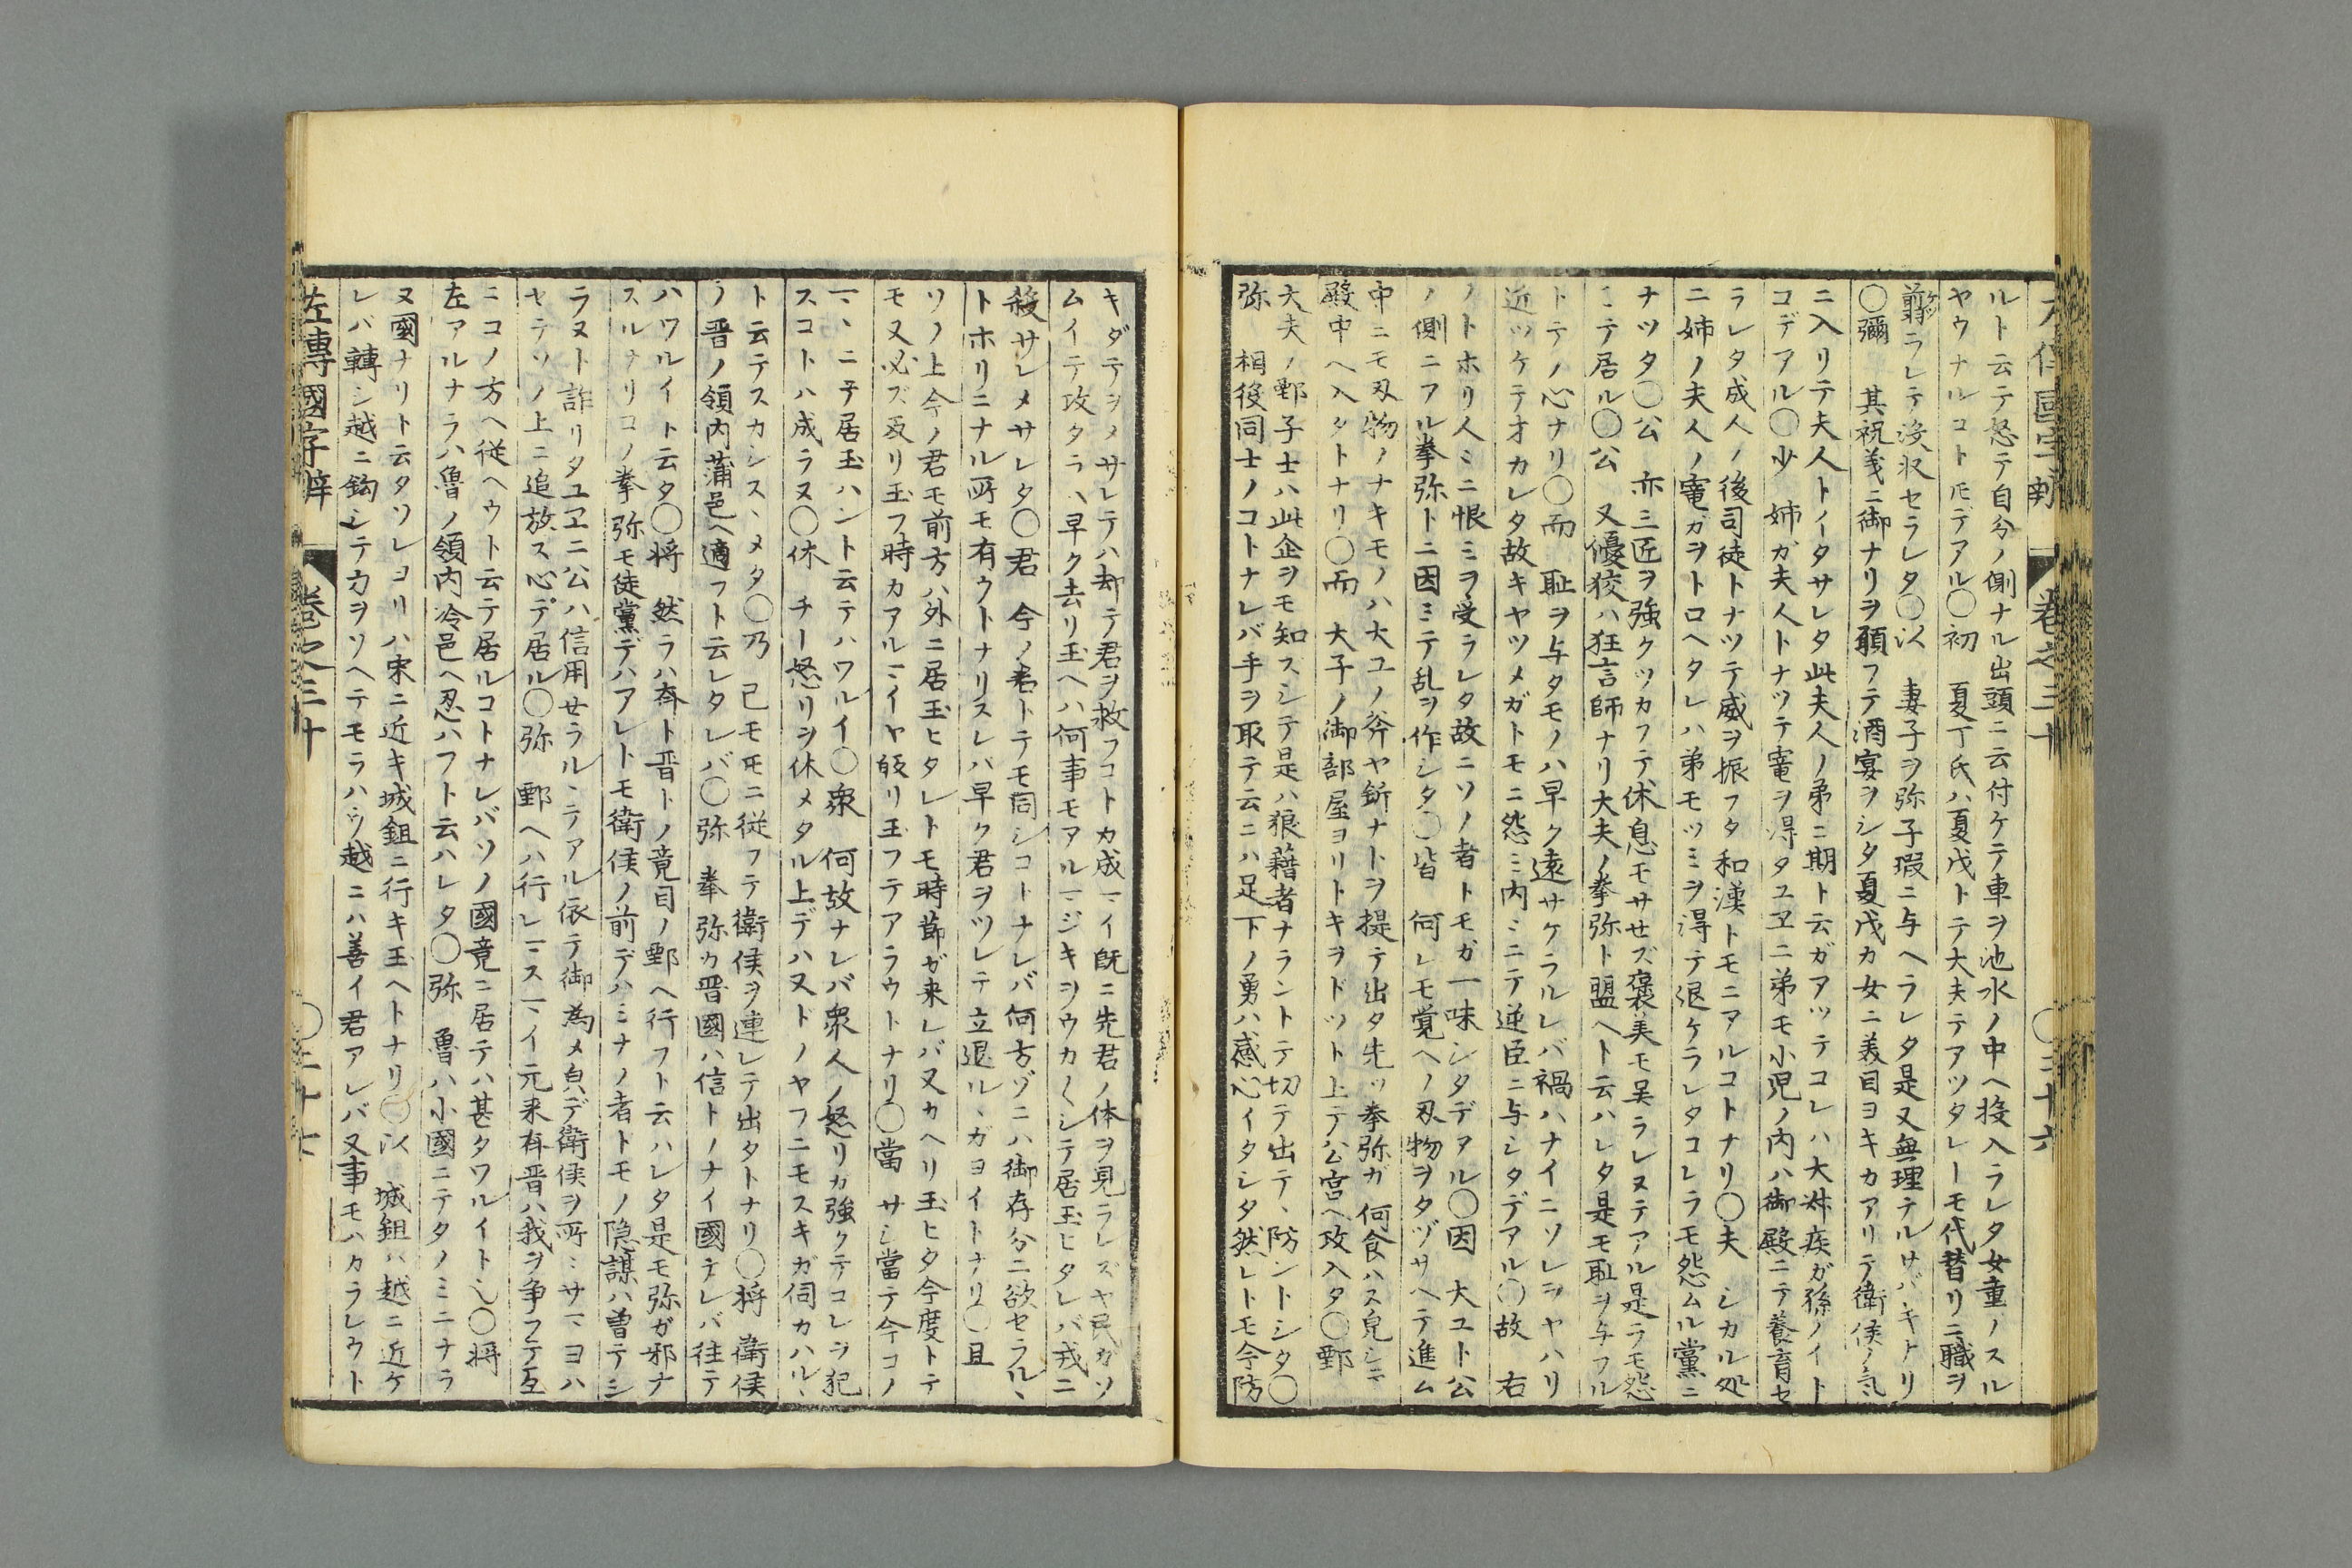 ルト云テ怒テ自分ノ側ナル出頭ニ云付ケテ車ヲ池水ノ中ヘ投入ラレタ女童ノスル
ヤウナルコトモデアル〇初 夏丁氏ハ夏戊トテ大夫テアツタレーモ代替リニ職ヲ
翦ラレテ没収セラレタ〇以 妻子ヲ弥子瑕ニ与ヘラレタ是又無理テルサバキナリ
〇彌 其祝義ニ御ナリヲ願フテ酒宴ヲシタ夏戊カ女ニ美目ヨキカアリテ衛侯ノ氣
ニ入リテ夫人トイタサレタ此夫人ノ弟ニ期ト云ガアツテコレハ大叔疾ガ孫ノイト
コデアル〇少 姉ガ夫人トナツテ寵ヲ得タユヱニ弟モ小児ノ内ハ御殿ニテ養育セ
ラレタ成人ノ後司徒トナツテ威ヲ振フタ和漢トモニアルコトナリ〇夫 シカル処
ニ姉ノ夫人ノ寵ガヲトロヘタレハ弟モツミヲ得テ退ケラレタコレラモ怨ムル黨ニ
ナツタ〇公 亦三匠ヲ強クツカフテ休息モサせズ褒美モ呉ラレヌテアル是ラモ怨
ミテ居ル〇公 又優狡ハ狂言師ナリ大夫ノ拳弥ト盟ヘト云ハレタ是モ恥ヲ与フル
トテノ心ナリ〇而 恥ヲ与タモノハ早ク遠サケラルレバ禍ハナイニソレヲヤハリ
近ツケテオカレタ故キヤツメガトモニ怨ミ内ミニテ逆臣ニ与シタデアル〇故 右
ノトホリ人ミニ恨ミヲ受ラレタ故ニソノ者トモガ一味シタデアル〇因 大ユト公
ノ側ニフル拳弥トニ因ミテ乱ヲ作シタ〇皆 何レモ覚ヘノ刄物ヲタヅサヘテ進ム
中ニモ刄物ノナキモノハ大ユノ斧ヤ釿ナトヲ提テ出タ先ツ拳弥ガ何食ハス皃シニテ
殿中ヘ入タトナリ〇而 大子ノ御部屋ヨリトキヲドツト上テ公宮ヘ攻入タ〇鄄
大夫ノ鄄子士ハ此企ヲモ知スシテ是ハ狼藉者ナラントテ切テ出テ、防ントシタ〇
弥 相役同士ノコトナレバ手ヲ取テ云ニハ足下ノ勇ハ感心イタシタ然レトモ今防
キダテヲメサレテハ却テ君ヲ救フコトカ成マイ既ニ先君ノ体ヲ見ラレズヤ民カソ
ムイテ攻タラハ早ク去リ玉ヘハ何事モアルマジキヲウカ〱シテ居玉ヒタレバ戎ニ
殺サレメサレタ〇君 今ノ君トテモ同シコトナレバ何方ゾニハ御存分ニ欲セラル、
トホリニナル所モ有ウトナリスレハ早ク君ヲツレテ立退ル、ガヨイトナリ〇且
ソノ上今ノ君モ前方ハ外ニ居玉ヒタレトモ時節ガ来レバ又カヘリ玉ヒタ今度トテ
モ又必ズ返リ玉フ時カアルマイヤ皈リ玉フテアラウトナリ〇當 サシ當テ今コノ
マヽニテ居玉ハント云テハワルイ〇衆 何故ナレバ衆人ノ怒リカ強クテコレラ犯
スコトハ成ラヌ〇休 チー怒リヲ休メタル上デハヌドノヤフニモスキガ伺カハル、
ト云テスカシス、メタ〇乃 已モモニ従フテ衛侯ヲ連レテ出タトナリ〇将 衛侯
ノ晋ノ領内蒲邑ヘ適フト云レタレバ〇弥 拳弥カ晋國ハ信トノナイ國テレバ往テ
ハワルイト云タ〇将 然ラハ斉ト晋トノ竟目ノ鄄ヘ行フト云ハレタ是モ弥ガ邪ナ
スルナリコノ拳弥モ徒黨デハアレトモ衛侯ノ前デハミナノ者トモノ隠謀ハ曽テシ
ラヌト詐リタユヱニ公ハ信用せラル、テアル依テ御為メ皃デ衛侯ヲ所ミサマヨハ
セテソノ上ニ追放ス心デ居ル〇弥 鄄ヘハ行レマスマイ元来斉晋ハ我ヲ争フテ互
ニコノ方ヘ従ヘウト云テ居ルコトナレバソノ國竟ニ居テハ甚タワルイト乀〇将
左アルナラハ魯ノ領内冷邑ヘ忍ハフト云ハレタ〇弥 魯ハ小國ニテタノミニナラ
ヌ國ナリト云タソレヨリハ宋ニ近キ城鉏ニ行キ玉ヘトナリ〇以 城鉏ハ越ニ近ケ
レバ轉シ越ニ鈎シテ力ヲソヘテモラハウ越ニハ善イ君アレバ又事モハカラレウト
左傳國字辯 卷之三十